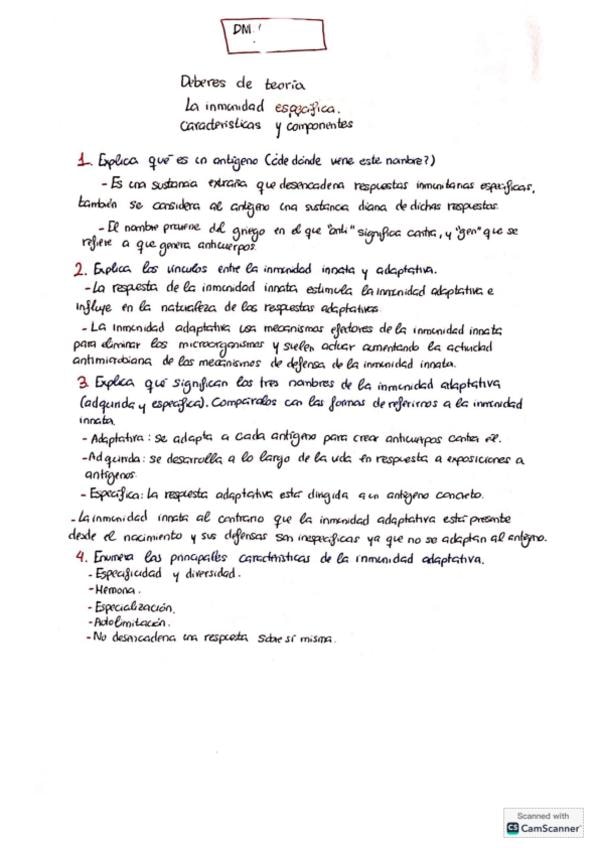 DM.
Deberes de teoría
La inmunidad específica.
Características y componentes
1. Explica qué es un antígeno (¿de dónde viene este nombre?)
- Es una sustancia extraña que desencadena respuestas inmunitarias específicas,
también se considera al antígeno una sustancia diana de dichas respuestas.
- El nombre proviene del griego en el que "anti" significa contra, y "gen" que se
refiere a que genera anticuerpos.
2. Explica los vínculos entre la inmunidad innata y adaptativa.
- La respuesta de la inmunidad innata estimula la inmunidad adaptativa e
influye en la naturaleza de las respuestas adaptativas.
- La inmunidad adaptativa usa mecanismos efectores de la inmunidad innata
para eliminar los microorganismos y suelen actuar aumentando la actividad
antimicrobiana de los mecanismos de defensa de la inmunidad innata.
3. Explica qué significan los tres nombres de la inmunidad adaptativa
(adquirida y específica). Compáralos con las formas de referirnos a la inmunidad
innata.
- Adaptativa: se adapta a cada antígeno para crear anticuerpos contra él.
- Adquirida: se desarrolla a lo largo de la vida en respuesta a exposiciones a
antígenos.
- Específica: La respuesta adaptativa está dirigida a un antígeno concreto.
- La inmunidad innata al contrario que la inmunidad adaptativa está presente
desde el nacimiento y sus defensas son inespecíficas ya que no se adaptan al antígeno.
4. Enumera las principales características de la inmunidad adaptativa.
- Especificidad y diversidad.
- Memoria.
- Especialización.
- Autolimitación.
- No desencadena una respuesta sobre sí misma.
Scanned with
CS CamScanner